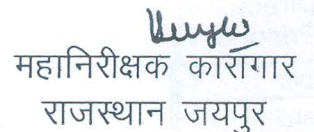 महानिरीक्षक कारागार
राजस्थान जयपुर